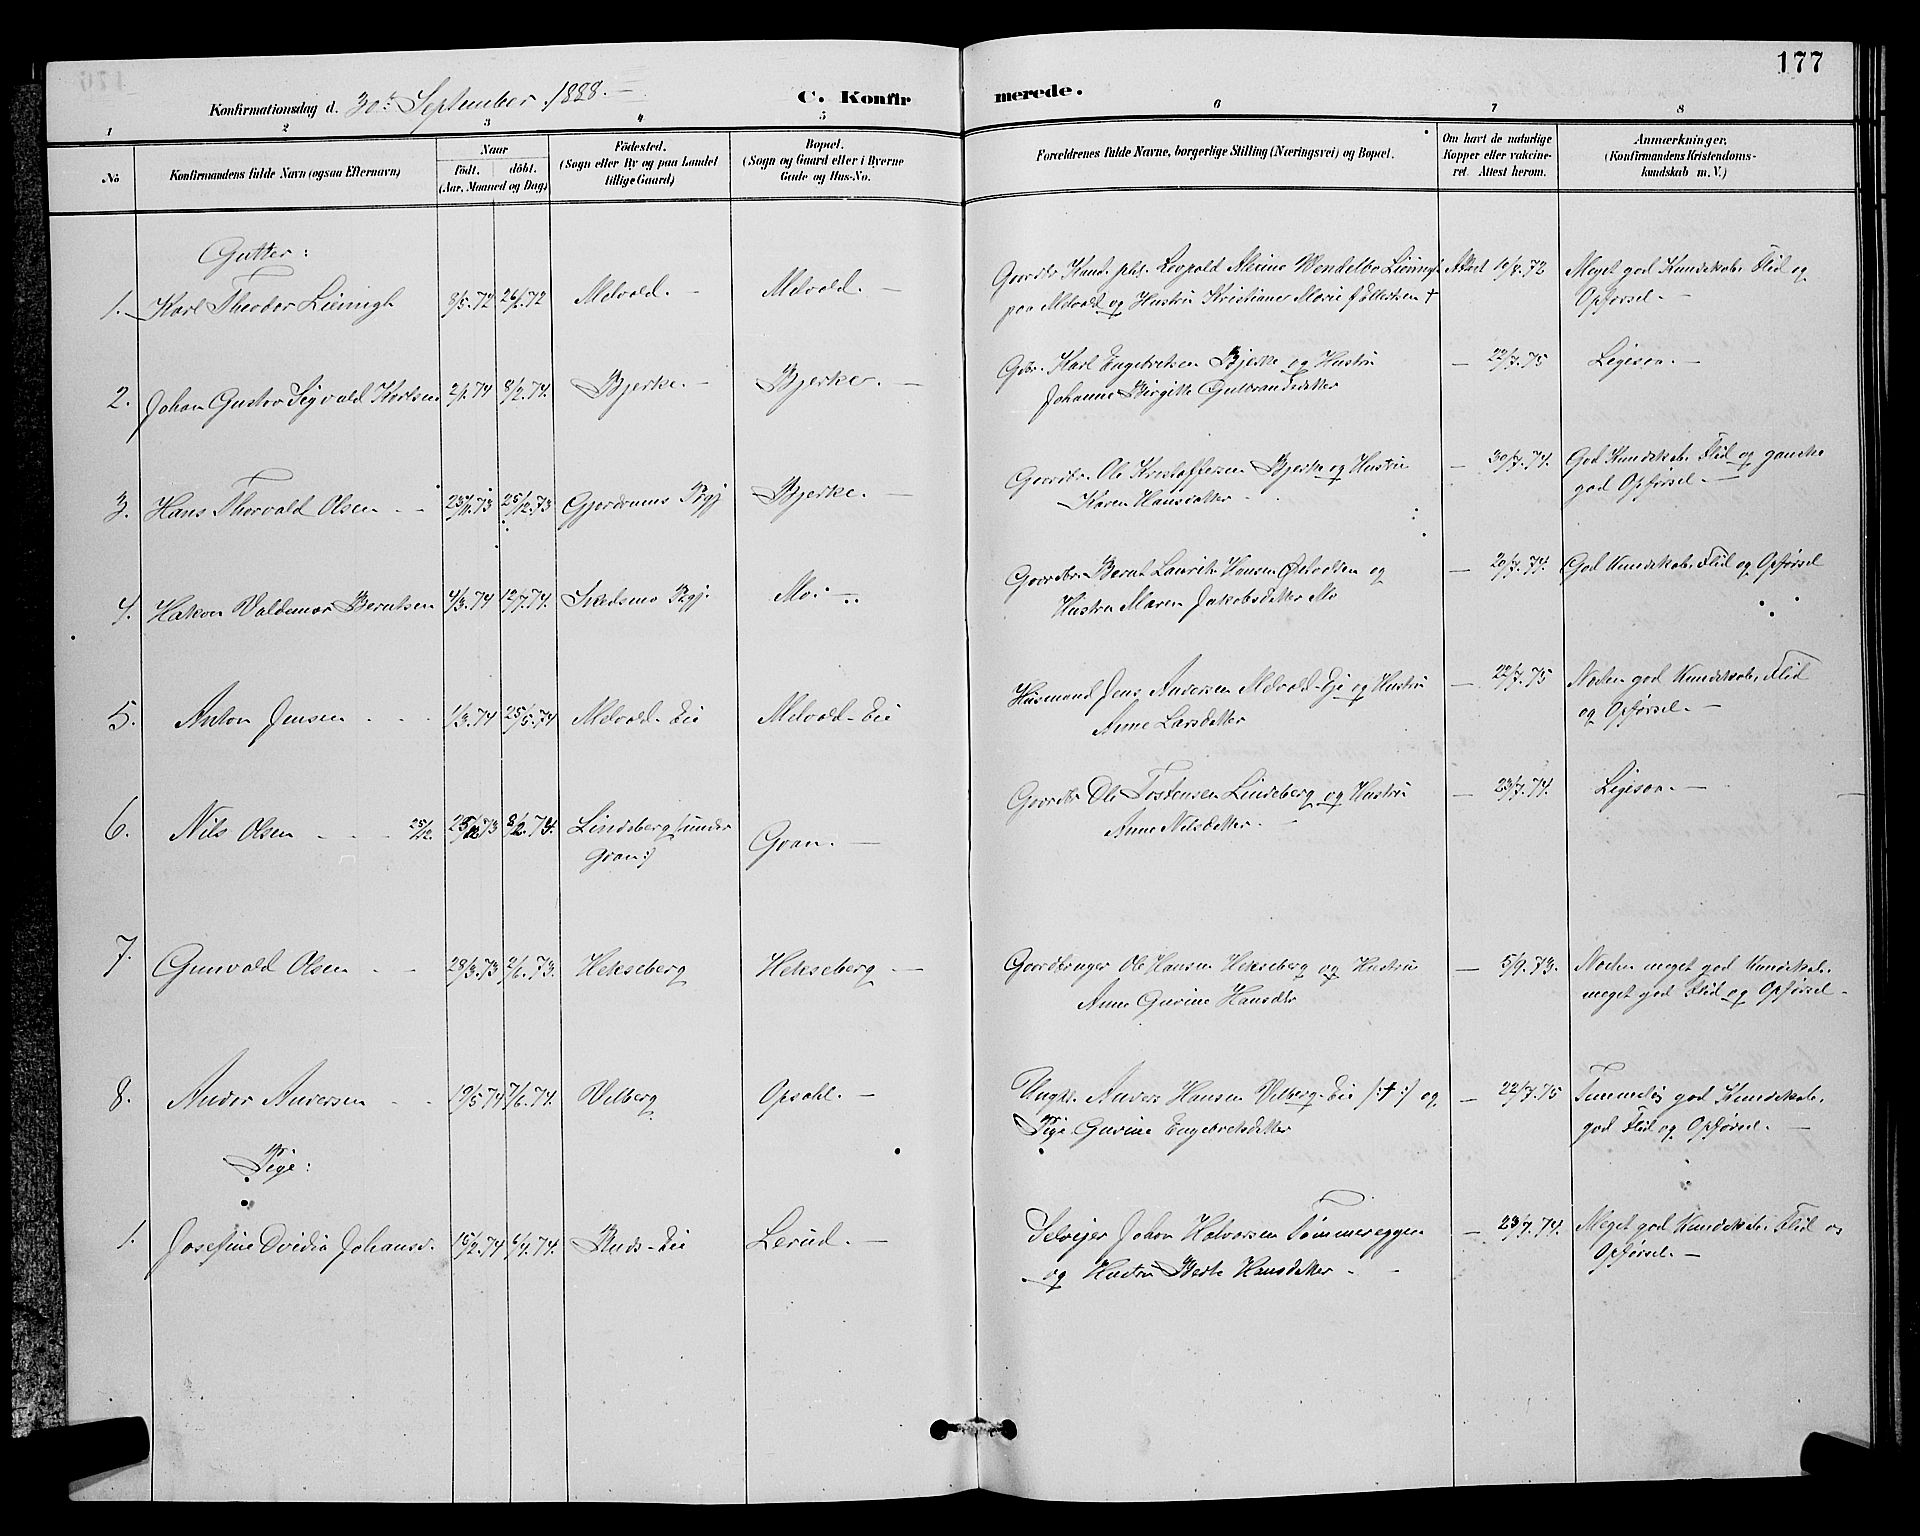 177
Konfirmationsdag d. 30te September 1888. —
C. Konfirmerede.
1 2 3 4 5 6 7 8
No
Konfirmandens fulde Navn (ogsaa Efternavn)
Naar
födt. döbt.
(Aar, Maaned og Dag)
Födested.
(Sogn eller By og paa Landet
tillige Gaard)
Bopæl.
(Sogn og Gaard eller i Byerne
Gade og Hus-No.
Forældrenes fulde Navne, borgerlige Stilling (Næringsvei) og Bopæl.
Om havt de naturlige
Kopper eller vakcine-
ret. Attest herom.
Anmærkninger,
(Konfirmandens Kristendoms-
kundskab m. V.)
Gutter:
1. Karl Theodor 8/5.72 26/ .72 Melvold. — Melvold. —
Gaardbr. Kand. phil. Leopold Wendelbo Attest 10/7.72 Meget god Kundskab, Flid og
paa Melvold og Hustru Kristiane Marie † Opførsel. —
2. Johan Gustav Sigvald Karlsen 2/1.74 8/2.74. Bjerke. — Bjerke. —
Gbr. Karl Engebretsen Bjerke og Hustru — 22/7.75 Ligesaa. —
Johanne Birgitte Gulbrandsdatter
3. Hans Thorvald Olsen 23/11.73 25/12.73 Gjerdrums Pgj Bjerke. —
Gaardbr. Ole Kristoffersen Bjerke og Hustru — 30/7.74. God Kundskab, Flid og ganske
Karen Hansdatter god Opførsel. —
4. Hakon Valdemar Berntsen 4/3.74 12/7.74. Skedsmo Pgj. Mo
Gaardbr. Bernt Laurits Hansen og — 20/7.74. God Kundskab, Flid og Opførsel
Hustru Maren Jakobsdatter Mo
5. Anton Jensen 1/3.74 25/5.74 Melvold-Eie Melvold-Eie
Husmand Jens Andersen Melvold-Eje og Hustru — 22/7.75 Noksaa god Kundskab, Flid
Anne Larsdatter og Opførsel. —
6. Nils Olsen 25/12. 25/12 73 8/2.74. Lindeberg (under Gran. —
Gran:)
Gaardbr Ole Tostensen Lindeberg og Hustru — 23/7.74. Ligesaa. —
Anne Nilsdatter.
7. Gunvald Olsen 28/3.73 2/6.73. Hekseberg Hekseberg —
Gaardbruger Ole Hansen Hekseberg og Hustru — 5/9.73. meget god Kundskab,
Anne Gurine Hansdtr meget god Flid og Opførsel —
8. Andor Andersen 19/5.74 7/6.74. Vilberg Opsahl. —
Ungk. Anders Hansen Vilberg-Eie /:†:/ og — 22/7.75 Temmelig god Kundskab,
Pige Gurine Engebretsdatter god Flid og Opførsel. —
Pige:
1. Josefine Ovidia Johansd. 15/2.74 6/4.74. Ruds-Eie Lerud. —
Selvejer Johan Halvorsen Tømmereggen — 23/7.74. Meget god Kundskab, Flid og
og Hustru Berte Hansdatter — Opførsel —